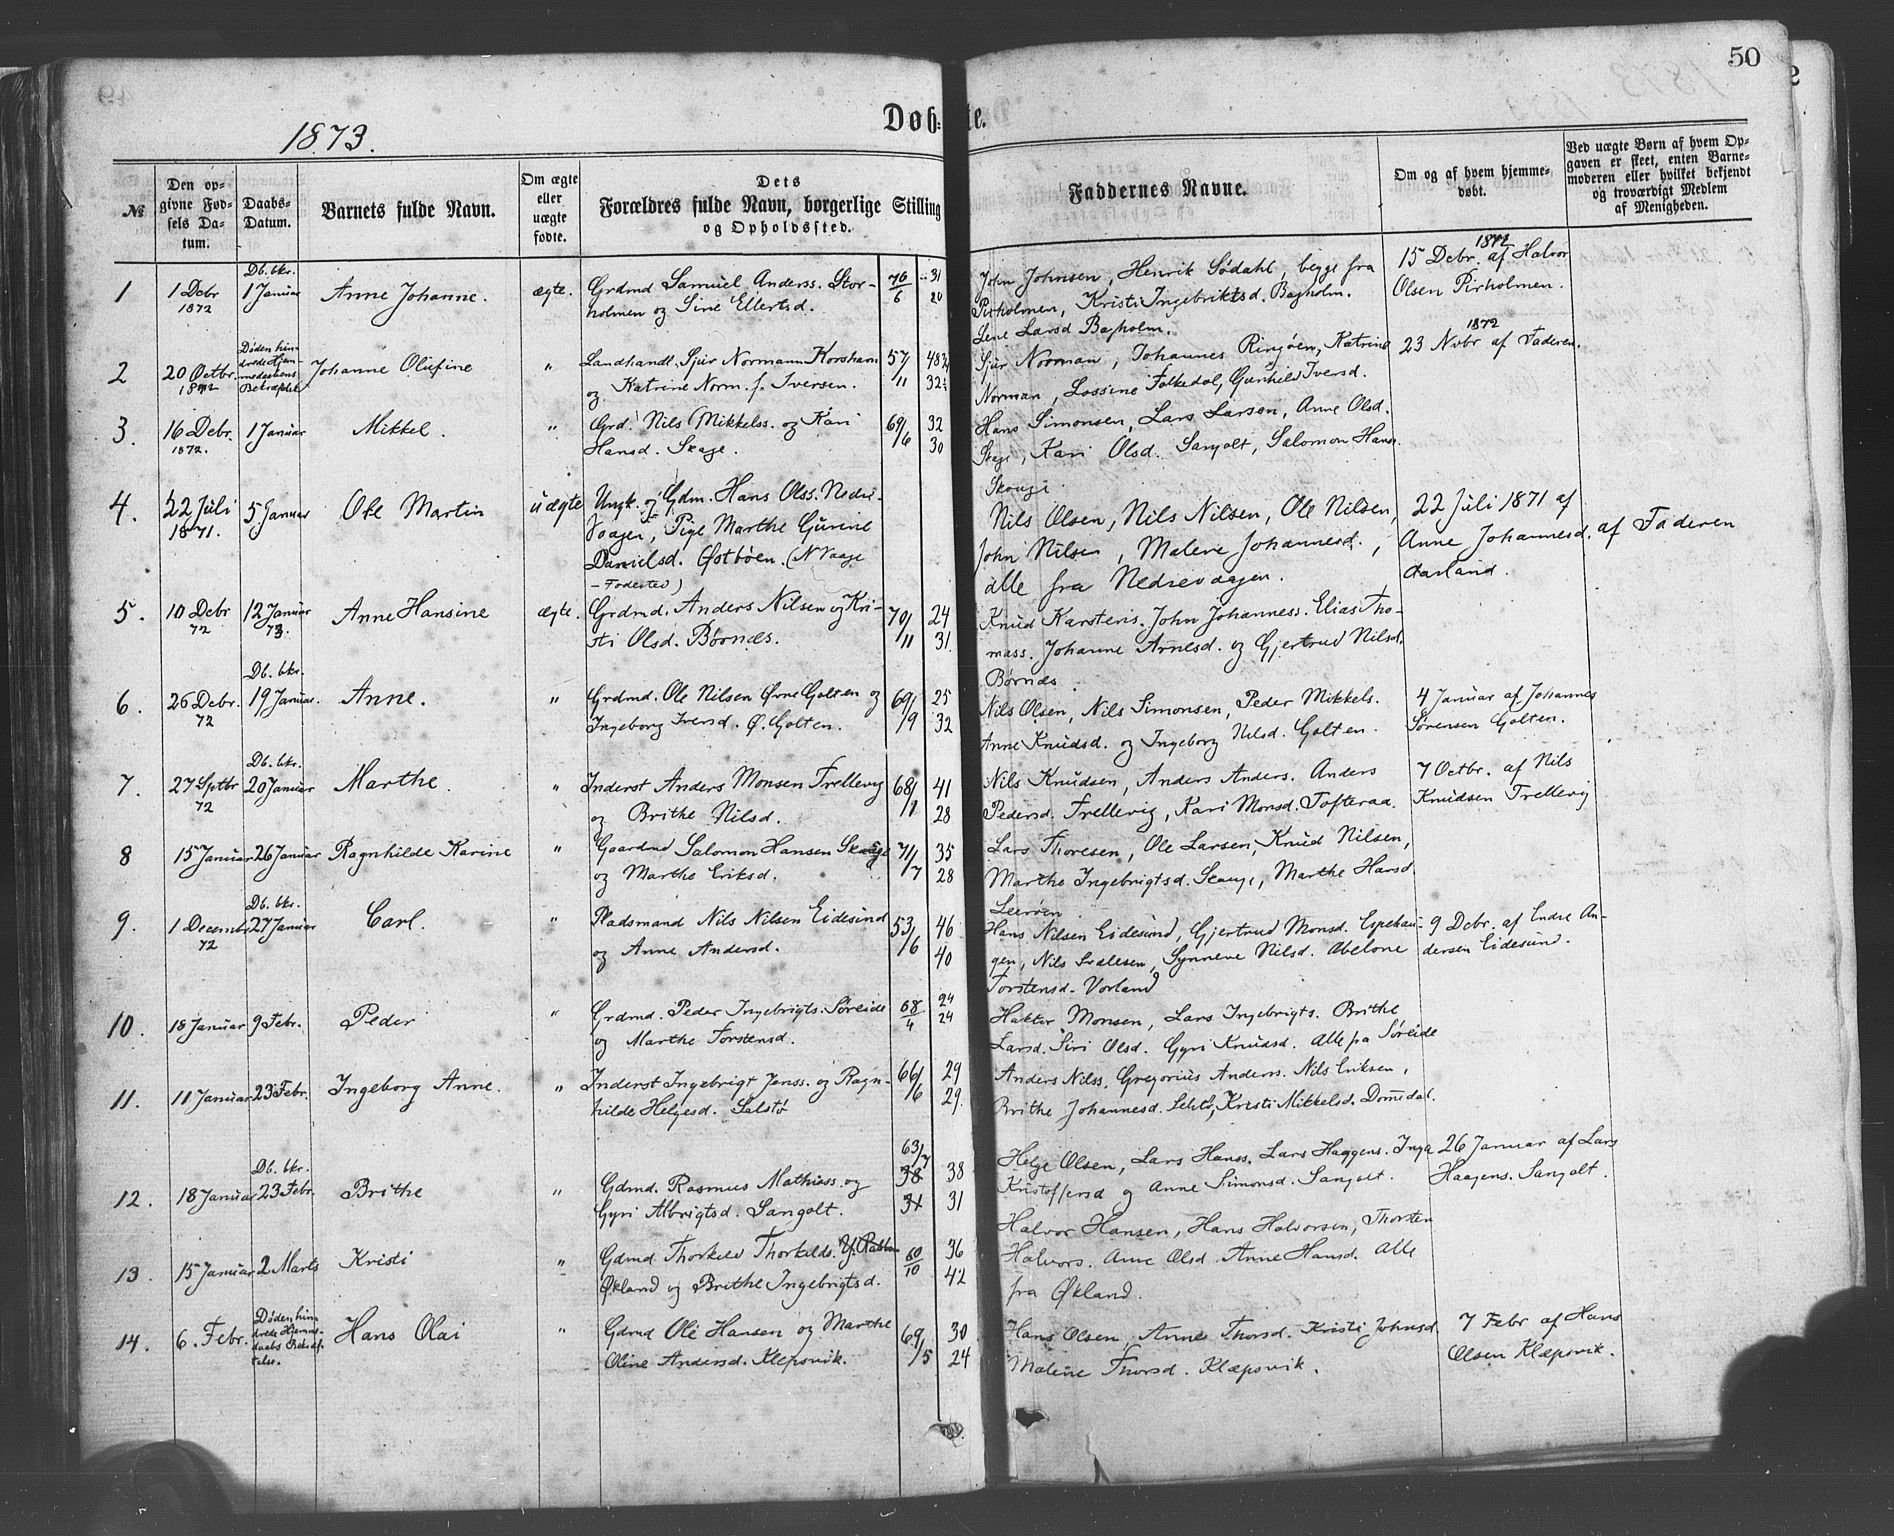 50
1873.
Døb-te.
№
Den opgivne Fødsels Datum.
Daabs-Datum.
Barnets fulde Navn.
Om ægte eller uægte fødte.
Dets Forældres fulde Navn, borgerlige Stilling og Opholdssted.
Faddernes Navne.
Om og af hvem hjemmedøbt.
Ved uægte Børn af hvem Opgaven er skeet, enten Barnemoderen eller hvilket bekjendt og troværdigt Medlem af Menigheden.
1 1 Debr 1872 Db. bkr. 1 Januar Anne Johanne. ægte.
Grdmd Samuel Anderss. Stor-
holmen og Sine Ellertsd. 76/6 31 20
John Johnsen, Henrik Sødahl, begge fra
Pirholmen, Kristi Ingebriktsd. Bagholm.
Lene Larsd Bagholm.
15 Debr. 1872 af Halvor
Olsen Pirholmen.
2 20 Octbr. 1872 Døden hin-
drede Hjem-
medaabens
Bekræftelse Johanne Olufine "
Landhandl. Sjur Normann Korshavn
og Katrine Norm. f. Iversen. 57/11 48 32
Sjur Norman, Johannes Ringøen, Katrine
Norman, Lossine Folkedal, Gunhild Iversd.
23 Nvbr 1872 af Faderen.
3. 16 Debr. 1872. 1 Januar Mikkel. "
Grd. Nils Mikkelss. og Kari
Hansd. Skage. 69/6 32 30
Hans Simonsen, Lars Larsen, Anne Olsd.
Skage, Kari Olsd. Sangolt, Salomon Hans.
Skauge
4. 22 Juli 1871. 5 Januar Ole Martin uægte
Ungk. og Gdm. Hans Olss. Nedre-
Vaagen, Pige Marthe Gurine
Danielsd. Østbøen. (N Vaage
- Fødested)
Nils Olsen, Nils Nilsen, Ole Nilsen,
John Nilsen, Malene Johannesd.,
alle fra Nedrevaagen.
22 Juli 1871 af
Anne Johannesd.
Aarland.
af Faderen
5. 10 Debr 72 12 Januar 73. Anne Hansine ægte.
Grdmd. Anders Nilsen og Kri-
sti Olsd. Børnæs. 70/11 24 31
Knud Karstens. John Johanness. Elias Tho-
mass. Johanne Arnesd. og Gjertrud Nilsd.
Børnæs.
6. 26 Debr. 72 Db. bkr. 19 Januar. Anne. "
Grdmd. Ole Nilsen Øvre Golten og
Ingeborg Iversd. Ø. Golten. 69/9 25 32
Nils Olsen, Nils Simonsen, Peder Mikkels.
Anne Knudsd. og Ingeborg Nilsd. Golten.
4 Januar af Johannes
Sørensen Golten.
7. 27 Sptbr 72 Db. bkr. 20 Januar Marthe. "
Inderst Anders Monsen Trellevig
og Brithe Nilsd. 68/1 41 28
Nils Knudsen, Anders Anders. Anders
Pedersd. Trellevig, Kari Monsd. Tofteraa.
7 Octbr. af Nils
Knudsen Trellevig
8 15 Januar 26 Januar Ragnhilde Karine "
Gaardmd Salomon Hansen Skauge
og Marthe Eriksd. 71/7 35 28
Lars Thoresen, Ole Larsen, Knud Nilsen,
Marthe Ingebrigtsd. Skauge, Marthe Hansd.
Leerøen.
9. 1 Decembr 72 Db. bkr. 27 Januar Carl. "
Pladsmand Nils Nilsen Eidesund
og Anne Andersd. 53/6 46 40
Hans Nilsen Eidesund, Gjertrud Monsd. Espehau-
gen, Nils Svalesen, Synneve Nilsd. Abelone
Torstensd. Vorland
9 Debr. af Endre An-
dersen Eidesund.
10. 18 Januar 9 Febr. Peder "
Grdmd. Peder Ingebrigts. Søreide
og Marthe Torstensd. 68/4 24 24
Haktor Monsen, Lars Ingebrigts. Brithe
Larsd. Siri Olsd. Gyri Knudsd. Alle fra Søreide
11. 11 Januar 23 Febr. Ingeborg Anne. "
Inderst Ingebrigt Jenss. og Ragn-
hilde Helgesd. Selstø 66/6 29 29.
Anders Nilss. Gregorius Anders. Nils Eriksen,
Brithe Johannesd. Selstø, Kristi Mikkelsd. Domedal.
12. 18 Januar Db. bkr. 23 Febr. Brithe "
Gdmd. Rasmus Mathiass. og
Gyri Albrigtsd. Sangolt. 63/7 38 31 38 31
Helge Olsen, Lars Hanss. Lars Haagens. Inga
Kristoffersd og Anne Simonsd. Sangolt.
26 Januar af Lars
Haagens. Sangolt.
13. 15 Januar 2 Marts Kristi "
Gdmd Thorkild Thorkilds.
Økland og Brithe Ingebrigtsd. 60/10 36 42
Halvor Hansen, Hans Halvorsen, Thorsten
Halvors. Anne Olsd. Anne Hansd. Alle
fra Økland.
14. 6. Febr. Døden hin-
drede Hjemme-
daabs Bekræf-
telse. Hans Olai "
Gdmd Ole Hansen og Marthe
Oline Andersd. Klepsvik. 69/5 30 24
Hans Olsen, Anne Thorsd. Kristi Johnsd.
Malene Thorsd. Klæpsvik.
7 Febr af Hans
Olsen Klæpsvik.